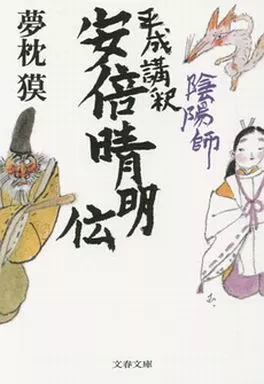 陰陽師
平成講釈
安倍晴明
伝
夢枕獏
文春文庫